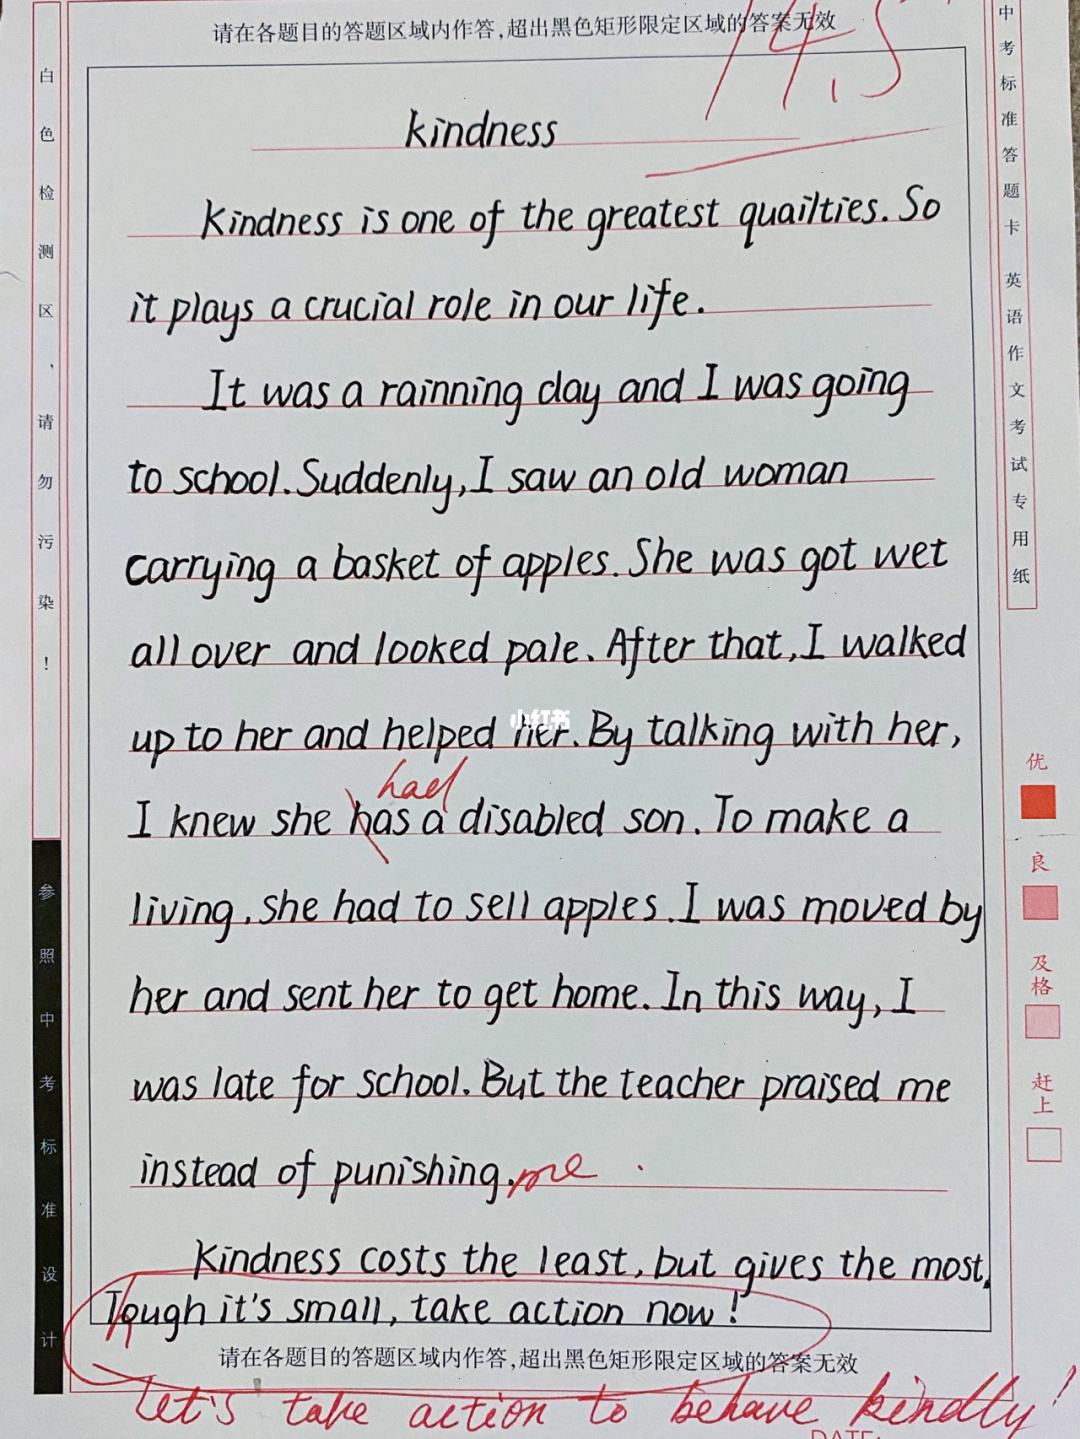 请在各题目的答题区域内作答,超出黑色矩形限定区域的答案无效
14.5
kindness
Kindness is one of the greatest quailties. So
it plays a crucial role in our life.
It was a rainning day and I was going
to school. Suddenly, I saw an old woman
carrying a basket of apples. She was got wet
all over and looked pale. After that, I walked
up to her and helped her. By talking with her,
小红书
had
I knew she has a disabled son. To make a
living, she had to sell apples. I was moved by
her and sent her to get home. In this way, I
was late for school. But the teacher praised me
instead of punishing. me .
Kindness costs the least, but gives the most.
Tough it's small, take action now!
h
请在各题目的答题区域内作答,超出黑色矩形限定区域的答案无效
Let's take action to behave kindly!
DATE:
白色检测区,请勿污染!
参照中考标准设计
中考标准答题卡 英语作文考试专用纸
优
良
及格
赶上